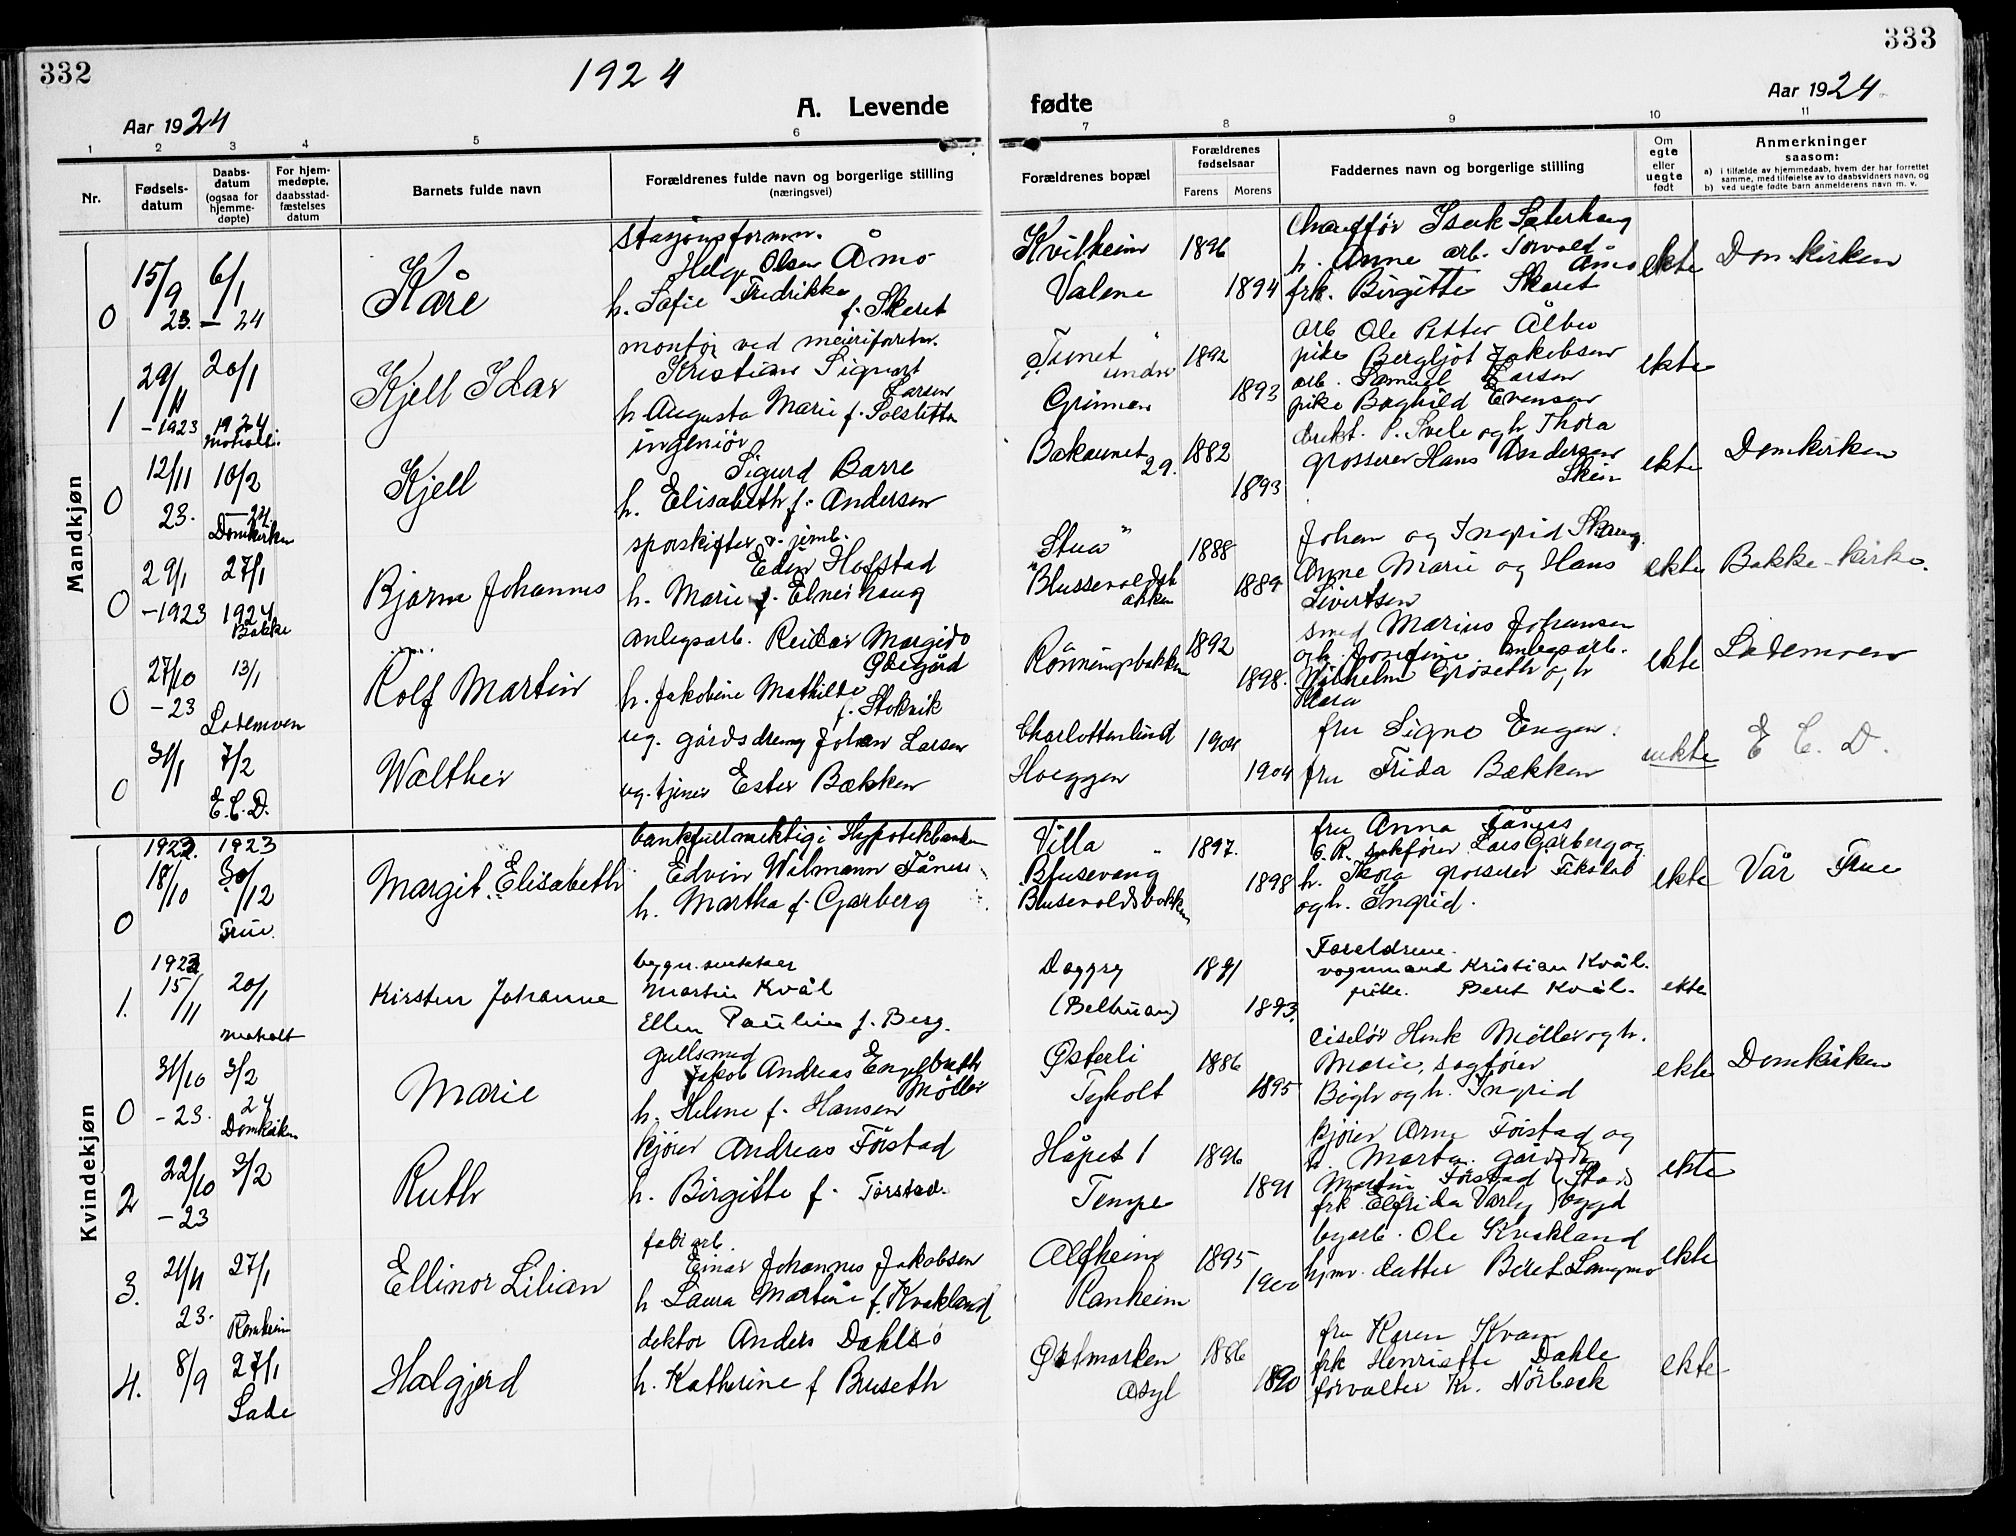 332
1924
333
Aar 1924
A. Levende
fødte
Aar 1924
1 2 3 4 5 6 7 8 9 10 11
Nr.
Fødsels-
datum
Daabs-
datum
(ogsaa for
hjemme-
døpte)
For hjem-
medøpte,
daabsstad-
fæstelses
datum
Barnets fulde navn
Forældrenes fulde navn og borgerlige stilling
(næringsvei)
Forældrenes bopæl
Forældrenes
fødselsaar
Farens Morens
Faddernes navn og borgerlige stilling
Om
egte
eller
uegte
født
Anmerkninger
saasom:
a) i tilfælde av hjemmedaab, hvem der har forrettet
samme, med tilføielse av to daabsvidners navn, og
b) ved uegte fødte barn anmelderens navn m. v.
Mandkjøn
0
15/9
23.
6/1
– 24
Kåre
Stasjonsformn.
Helge Olsen Åmo
h. Sofie Fredrikke
f. Skeret
Kvilheim
Valene
1896
1894
Chauffør Isak Sæterhaug
h. Anne arb. Torvald
Åmo
frk. Birgitte Skeret
ekte
Domkirken
1
29/11
-1923
20/1
1924
Moholt.
Kjell Idar
montør ved meieriforretn.
Kristian Sigvart
Larsen
h. Augusta Marie f. Solsletta
"Tunet"
undre
Grinnen
1892
1893
arb Ole Petter Ålbu
pike Bergljot Jakobsen
arb. Samuel Larsen
pike Baghild Evensen
ekte
0
12/11
23.
10/2
– 24.
Domkirken
Kjell
ingeniør
Sigurd Barre
h. Elisabeth f. Andersen
Bakaunet
29.
1882
1893
direkt. P. Svele og h Thora
grosserer Hans Andersen
Skien
ekte
Domkirken
0
29/1
-1923
27/1
1924
Bakke
Bjarne Johannes
sporskifter v. jernb.
Edin Hofstad
h. Marie f. Elneshaug
"Stua"
Blussevoldsb
akken
1888
1889
Johan og Ingrid Skaug.
Anne Marie og Hans
Sivertsen
ekte
Bakke-kirke.
0
27/10
-23
13/1
Lademoen
Rolf Martin
anlegsarb. Reidar Margido
Ødegård
h. Jakobine Mathilde
f. Stokvik
Rønningsbakken
1892
1898.
smed Marius Johansen
og h. Josefine anlegsarb.
Vilhelm Grøseth og h
Klara
ekte
Lademoen
0
31/1
7/2
E.C.D.
Walther
ug. gårdsdreng Johan Larsen
ug. tjener Ester Bækken
Charlottenlund
Hoeggen
1904
1904
fru Signe Engen.
fru Frida Bækken
uekte
E C. D.
Kvindekjøn
0
1923.
18/10
1923
30/12
Frue.
Margit Elisabeth
bankfullmektig i Hypotekbanken
Edvin Wilmann Tånes
h. Martha f. Garberg
Villa
Blusevang
Blusevoldsbakken
1897.
1898
fru Anna Tånes
O.R. sakfører Lars Garberg og
h. Thora grosserer Fikstad
og h. Ingrid.
ekte
Vår Frue
1.
1923
15/11
20/1
Moholt
Kirsten Johanne
bygn.snekker
Martin Kvål
Ellen Pauline f. Berg.
Daggry
(Belbuan)
1891
1893.
Foreldrene.
vognmand Kristian Kvål.
pike. Beret Kvål.
ekte
0
31/10
-23.
3/2
24
Domkirken
Marie
gullsmed
Jakob Andreas Engelbreth
Møller
h. Helene f. Hansen
Østerli
Tyholt
1886
1895
ciselør Henk Møller og h.
Marie, sagfører
Bögh og h. Ingrid
ekte
Domkirken
2
22/10
-23
3/2
Ruth
kjører Andreas Forstad
h. Birgitte f. Torstad.
Håpet 1
Tempe
1896
1891
kjører Arne Forstad og
h. Marta. gårdbr
Martin Forstad (Stads
frk. Elfrida Værly )bygd
ekte
3.
21/11
23.
27/1
Ranheim
Ellinor Lilian
fabr.arb.
Einar Johannes Jakobsen
h. Laura Martine f. Kvakland
Alfheim
Ranheim
1895
1900
byarb. Ole Kvakland
hjmv. datter Beret Langmo
ekte
4.
8/9
27/1
Lade
Halgjerd
doktor Anders Dahlsø
h. Katherine f Bruseth
Østmarken
Asyl
1886
1890
fru Karen Kvam
frk Henriette Dahle
forvalter Kr. Nörbeck
ekte